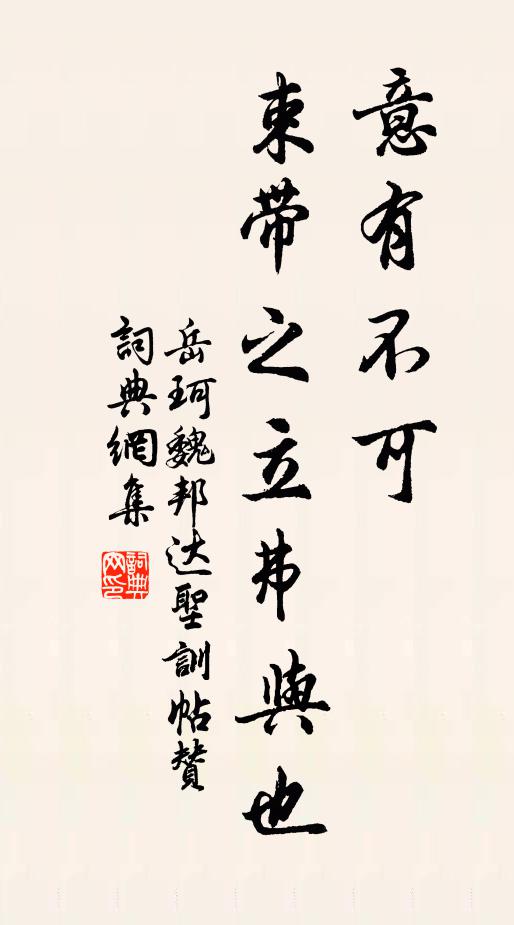 意有不可
束带之立弗與也
岳珂魏邦达聖訓帖贊
詞典網集
詞典網印